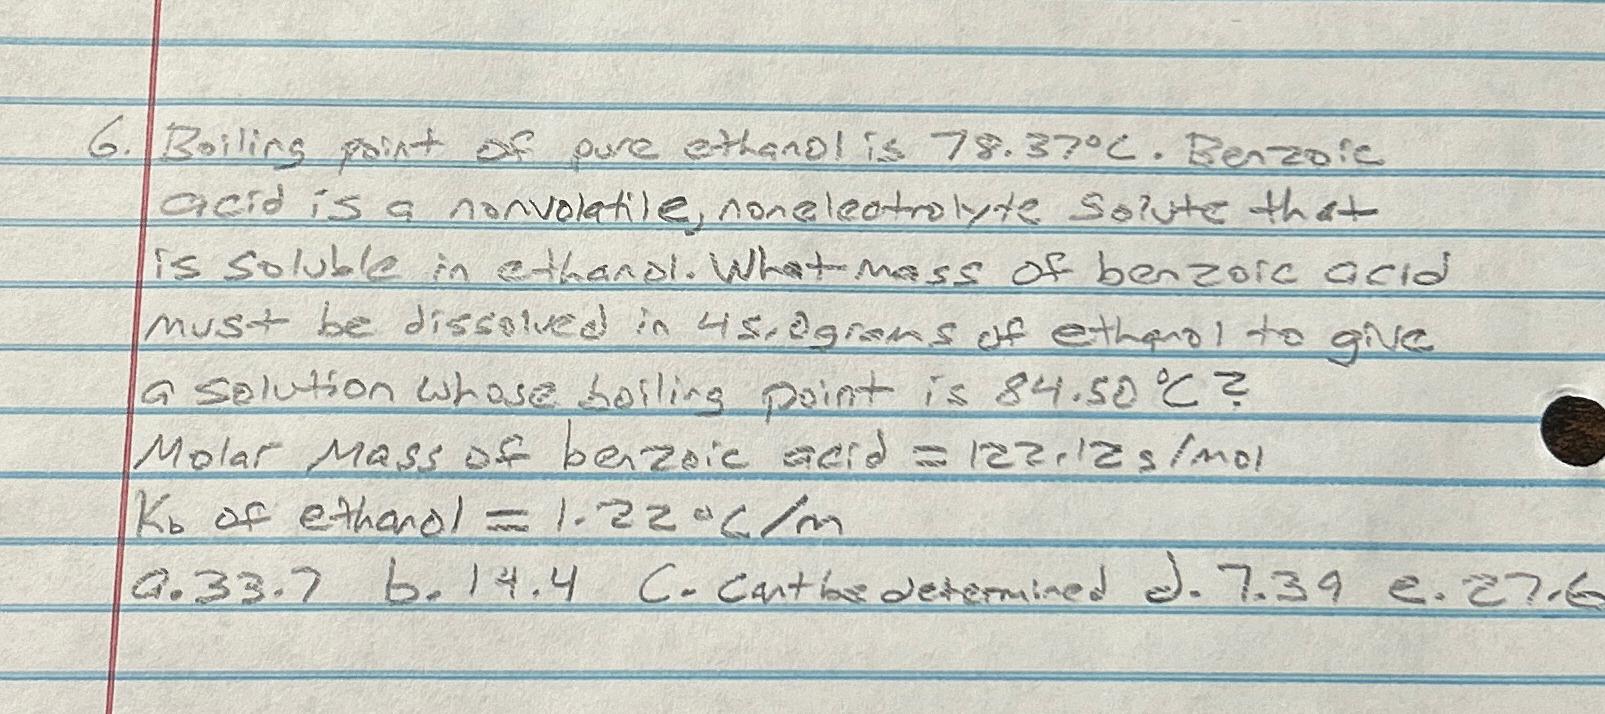 6. Boiling point of pure ethanol is 78.37°C. Benzoic
acid is a nonvolatile, nonelectrolyte solute that
is soluble in ethanol. What mass of benzoic acid
must be dissolved in 45.0grams of ethanol to give
a solution whose boiling point is 84.50°C?
Molar Mass of benzoic acid = 122.12g/mol
Kb of ethanol = 1.22°C/m
a. 33.7 b. 14.4 C. Cant be determined d. 7.39 e. 27.6